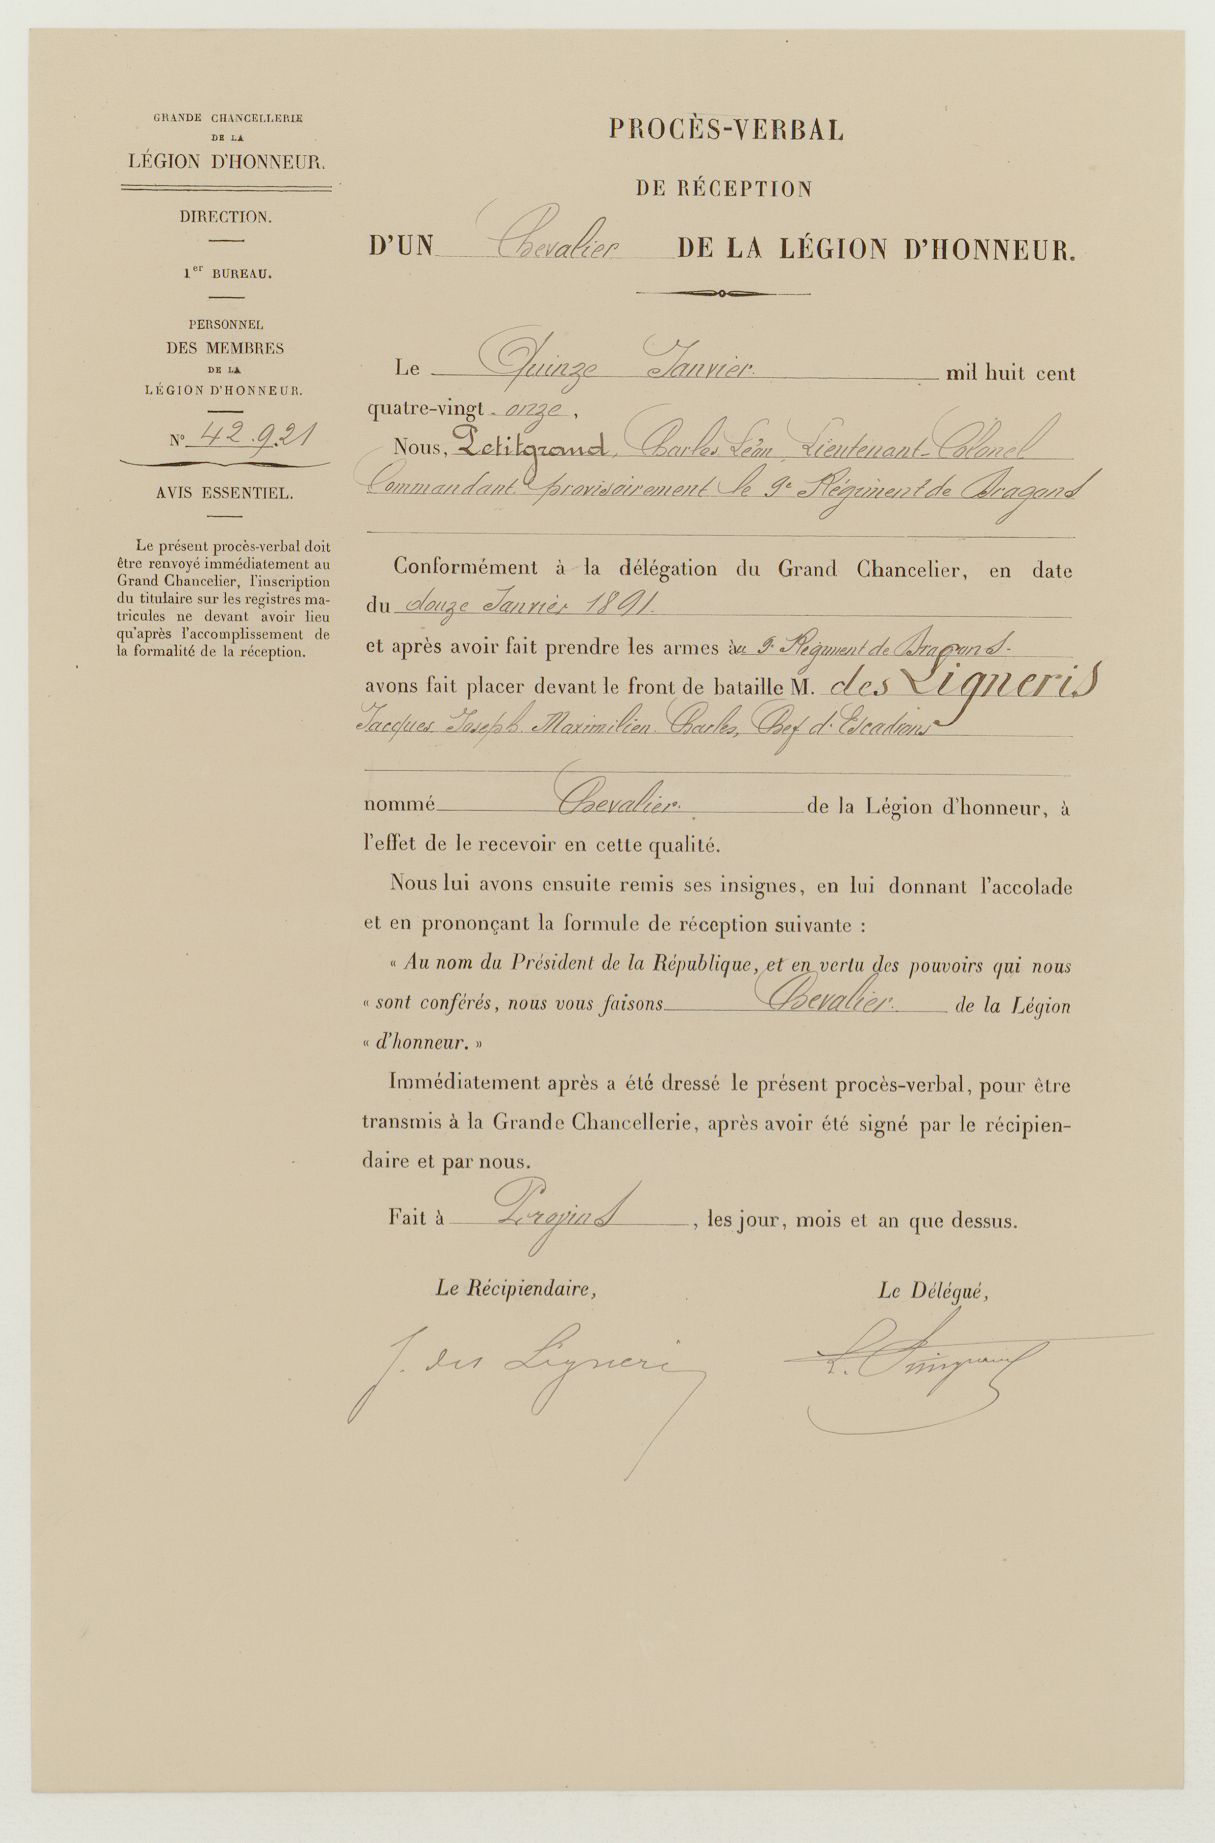 GRANDE CHANCELLERIE
DE LA
LÉGION D'HONNEUR.
DIRECTION.
1er BUREAU.
PERSONNEL
DES MEMBRES
DE LA
LÉGION D'HONNEUR.
N° 42.921
AVIS ESSENTIEL.
Le présent procès-verbal doit
être renvoyé immédiatement au
Grand Chancelier, l'inscription
du titulaire sur les registres ma-
tricules ne devant avoir lieu
qu'après l'accomplissement de
la formalité de la réception.
PROCÈS-VERBAL
DE RÉCEPTION
D'UN Chevalier DE LA LÉGION D'HONNEUR.
Le Quinze Janvier mil huit cent
quatre-vingt-onze,
Nous, Petitgrand, Charles Léon, Lieutenant-Colonel
Commandant provisoirement le 9e Régiment de Dragons
Conformément à la délégation du Grand Chancelier, en date
du douze Janvier 1891.
et après avoir fait prendre les armes au 9e Régiment de Dragons.
avons fait placer devant le front de bataille M. des Ligneris
Jacques Joseph Maximilien Charles, Chef d'Escadrons
nommé Chevalier. de la Légion d'honneur, à
l'effet de le recevoir en cette qualité.
Nous lui avons ensuite remis ses insignes, en lui donnant l'accolade
et en prononçant la formule de réception suivante :
« Au nom du Président de la République, et en vertu des pouvoirs qui nous
« sont conférés, nous vous faisons Chevalier. de la Légion
« d'honneur. »
Immédiatement après a été dressé le présent procès-verbal, pour être
transmis à la Grande Chancellerie, après avoir été signé par le récipien-
daire et par nous.
Fait à Provins, les jour, mois et an que dessus.
Le Récipiendaire,
J. des Ligneris
Le Délégué,
L.